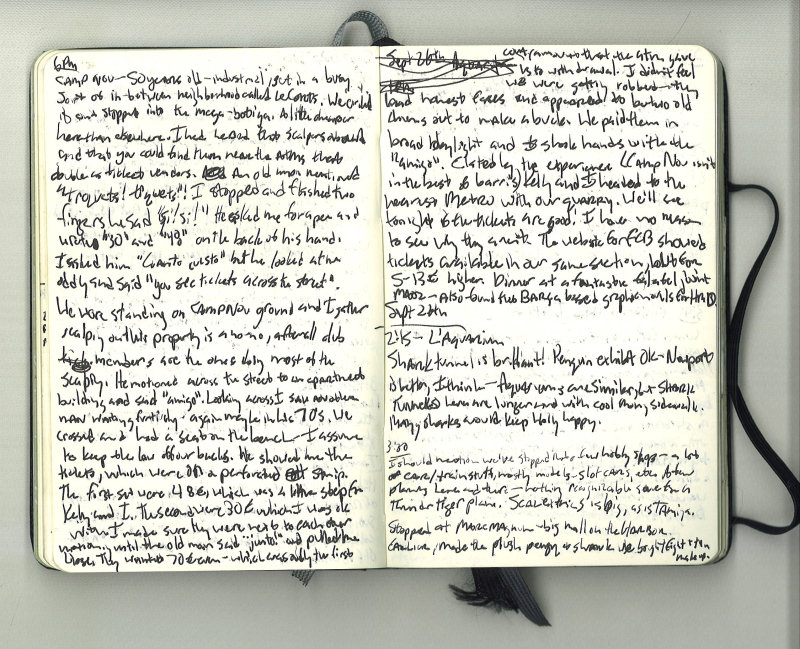 6PM
CAMP NOU - 50 years old - industrial, set in a busy
sort of in between neighborhood called Les Corts. We circled
it and stopped into the mega-botiga. A little cheaper
here than elsewhere. I had heard that scalpers abound
and that you could find them near the ATMs that
double as ticket vendors. An old man mentioned
"Tiquets! tiquets"! I stopped and flashed two
fingers he said "si! si!" He asked me for a pen and
wrote "30" and "48" on the back of his hand.
I asked him "Cuanto cuesta" but he looked at me
oddly and said "you see tickets across the street".
We were standing on CAMP NOU ground and I gather
scalping on this property is a no no, after all club
members are the ones doing most of the
scalping. He motioned across the street to an apartment
building and said "amigo". Looking across I saw another
man waiting furtively - again maybe in his 70s. We
crossed and had a seat on the bench - I assume
to keep the law off our backs. He showed me the
tickets, which were on a perforated strip.
The first set were 48€, which was a little steep for
Kelly and I. The second were 30€ which I was ok
with. I made sure they were next to each other
until the old man said "junto" and pulled me
closer. They wanted 70 euro - which was only the first
Sept 26th
commission to that the ATM gave
us to withdrawal. I didn't feel
we were getting robbed - they
had honest faces and appeared to be two old
men out to make a buck. We paid them in
broad daylight and I shook hands with the
"amigo". Elated by the experience (CAMP NOU isn't
in the best of barris) Kelly and I headed to the
nearest Metro with our quarry. We'll see
tonight if the tickets are good. I have no reason
to see why they aren't. The website for FCB showed
tickets available in our same section, but for
5-13€ higher. Dinner at a fantastic falafel joint
MAOZ - Also found two BARÇA based graphic novels for
Sept 26th
2:15 - L'Aquarium
Shark tunnel is brilliant! Penguin exhibit OK - Newport
is better, I think - Aquariums are similar, but SHARK
TUNNELS here are longer and with cool moving sidewalk.
Many sharks would keep Holly happy.
3:30
I should mention we've stopped into a few hobby shops - a lot
of cars/train stuff, mostly models - slot cars, also. A few
planes here and there - nothing recognizable save for a
Thunder Tiger plane. Scalextric is big, as is Tamiya.
Stopped at MAREMAGNUM - big mall on the HARBOR.